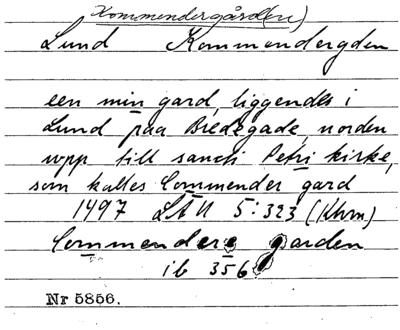 Kommendergård(en)
Lund Kommendergden
een min gard, liggendes i
Lund paa Bredegade, norden
wpp till sancti Petri kirke,
som kalles Commender gard
1497 LÄU 5:323 (Khvn)
Commendere garden
ib 356
Nr 5856.